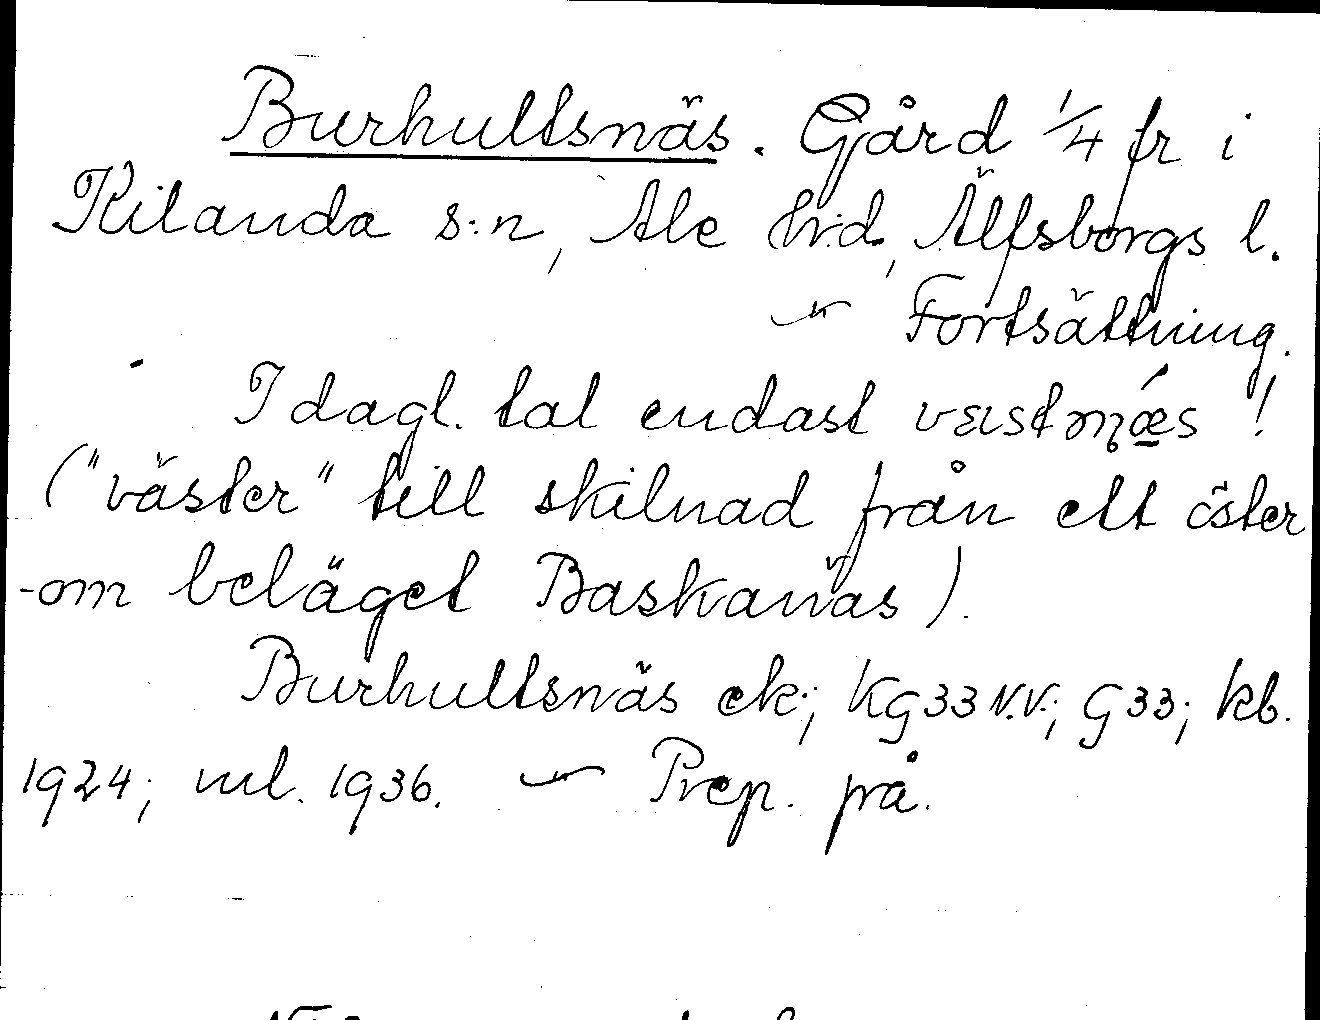 Burhultsnäs. Gård 1/4 fr i
Kilanda s:n, Ale hd, Älfsborgs l.
~ Fortsättning.
I dagl. tal endast !
("väster" till skilnad från ett öster
-om beläget Baskanäs).
Burhultsnäs ek.; KG33 N.V.; G33; kb.
1924; ml. 1936. ~ Prep. på.